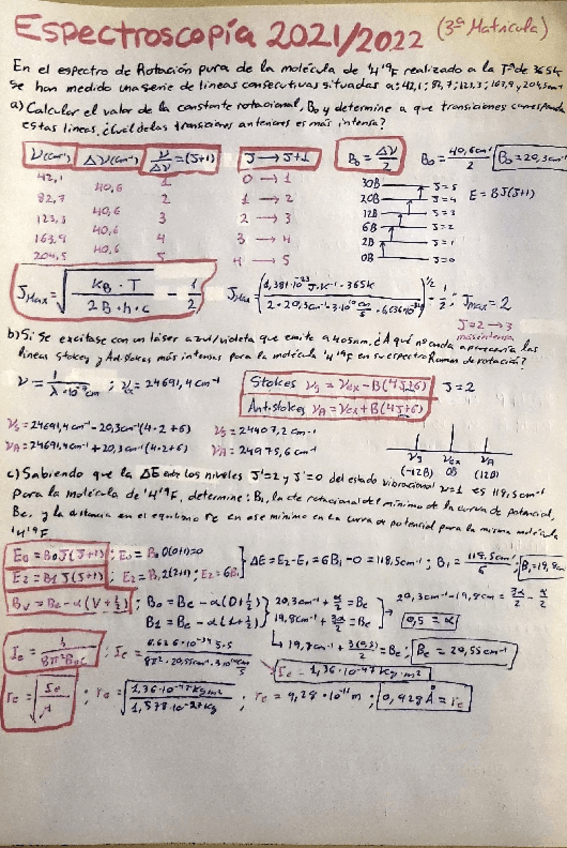 Espectroscopía 2021/2022 (3ª Matricula)
En el espectro de Rotación pura de la molécula de ¹H¹⁹F realizado a la Tª de 365k
se han medido una serie de lineas consecutivas situadas a: 42,1; 82,7; 123,3; 163,9 y 204,5 cm⁻¹
a) Calcular el valor de la constante rotacional, B₀ y determine a que transiciones corresponden
estas lineas. ¿Cuál de las transiciones anteriores es más intensa?
ν(cm⁻¹) Δν(cm⁻¹) ν/Δν = (J+1) J → J+1 B₀ = Δν/2 B₀ = 40,6cm⁻¹/2 B₀ = 20,3cm⁻¹
42,1 1 0 → 1 30B J = 5
40,6
82,7 2 1 → 2 20B J = 4 E = BJ(J+1)
40,6
123,3 3 2 → 3 12B J = 3
40,6
163,9 4 3 → 4 6B J = 2
40,6 2B J = 1
204,5 5 4 → 5 0B J = 0
J_Max = √(k_B · T / 2B · h · c) − 1/2 J_Max = (1,381·10⁻²³ J·K⁻¹ · 365k / 2 · 20,3cm⁻¹ · 3·10¹⁰ cm/s · 6,636·10⁻³⁴)^1/2 − 1/2 ; J_max = 2
J=2 → 3
más intensa
b) Si se excitase con un láser azul/violeta que emite a 405nm. ¿A qué nº onda aparecería las
lineas Stokes y Antistokes más intensas para la molécula ¹H¹⁹F en su espectro Raman de rotación?
ν = 1/λ·10⁻⁷cm ; νₑₓ = 24691,4cm⁻¹ Stokes ν_S = νₑₓ − B(4J+6) J = 2
Antistokes ν_A = νₑₓ + B(4J+6)
ν_S = 24691,4cm⁻¹ − 20,3cm⁻¹(4·2+6) ν_S = 24407,2cm⁻¹
ν_A = 24691,4cm⁻¹ + 20,3cm⁻¹(4·2+6) ν_A = 24975,6cm⁻¹ ν_S νₑₓ ν_A
(-12B) 0B (12B)
c) Sabiendo que la ΔE entre los niveles J'=2 y J'=0 del estado vibracional ν=1 es 118,5cm⁻¹
para la molécula de ¹H¹⁹F, determine: B₁, la cte rotacional del mínimo de la curva de potencial,
Be, y la distancia en el equilibrio re en ese minimo en la curva de potencial para la misma molécula
¹H¹⁹F
E₀ = B₀J(J+1) ; E₀ = B₀ 0(0+1) = 0
E₂ = B₁J(J+1) ; E₂ = B₁ 2(2+1) ; E₂ = 6B₁ } ΔE = E₂ − E₁ = 6B₁ − 0 = 118,5cm⁻¹ ; B₁ = 118,5cm⁻¹/6 ; B₁ = 19,8cm
B_ν = Be − α(V+½) ; B₀ = Be − α(0+½) } 20,3cm⁻¹ + α/2 = Be } → 20,3cm⁻¹ − 19,8cm = 3α/2 − α/2
B₁ = Be − α(1+½) } 19,8cm⁻¹ + 3α/2 = Be 0,5 = α
19,8cm⁻¹ + 3(0,5)/2 = Be ; Be = 20,55cm⁻¹
Ie = h/8π²Bₑc ; Ie = 6,626·10⁻³⁴ J·s / 8π² · 20,55cm⁻¹ · 3·10¹⁰ cm/s Ie = 1,36·10⁻⁴⁷ Kg m²
re = √(Ie/μ) ; re = √(1,36·10⁻⁴⁷ Kg m² / 1,578·10⁻²⁷ Kg) ; re = 9,28·10⁻¹¹ m ; 0,928 Å = re